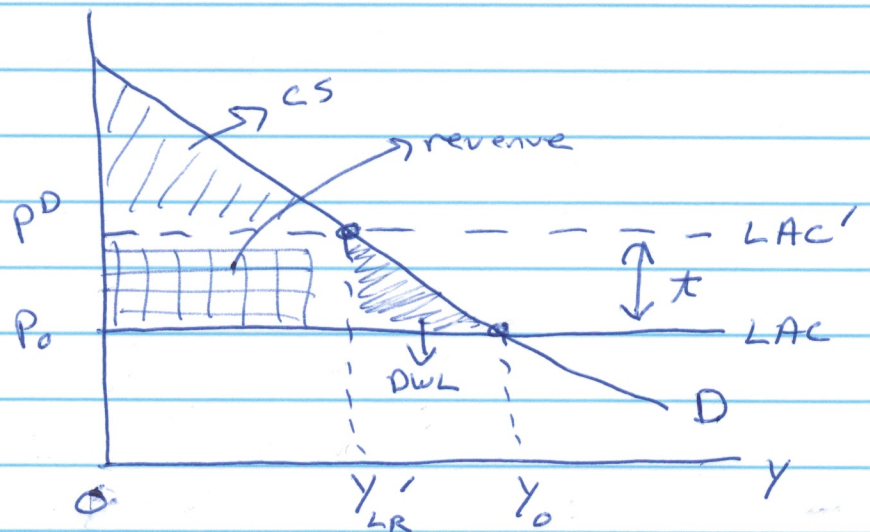 CS
revenue
P^D
LAC'
t
P_0
LAC
DWL
D
y
0
y'_LR
y_0